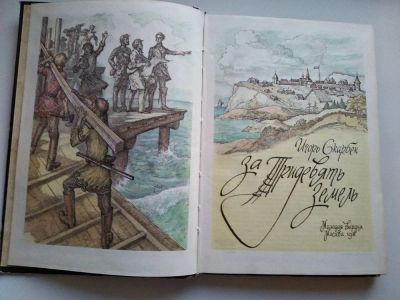 Игорь Скарбек
за
Тридевять
Земель
Молодая гвардия
Москва